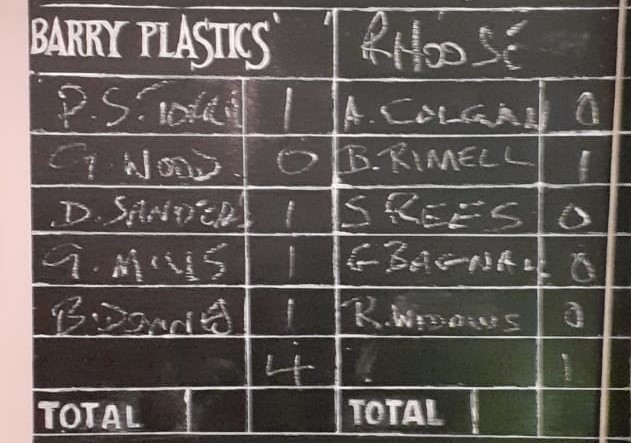 BARRY PLASTICS' ' RHOOSE
P. S. 1 A. COLGAN 0
G. WOOD 0 B. RIMELL 1
D. SANDERS 1 S REES 0
G. MILLS 1 G BAGNALL 0
B. 1 R. WIDDOWS 0
4 1
TOTAL TOTAL